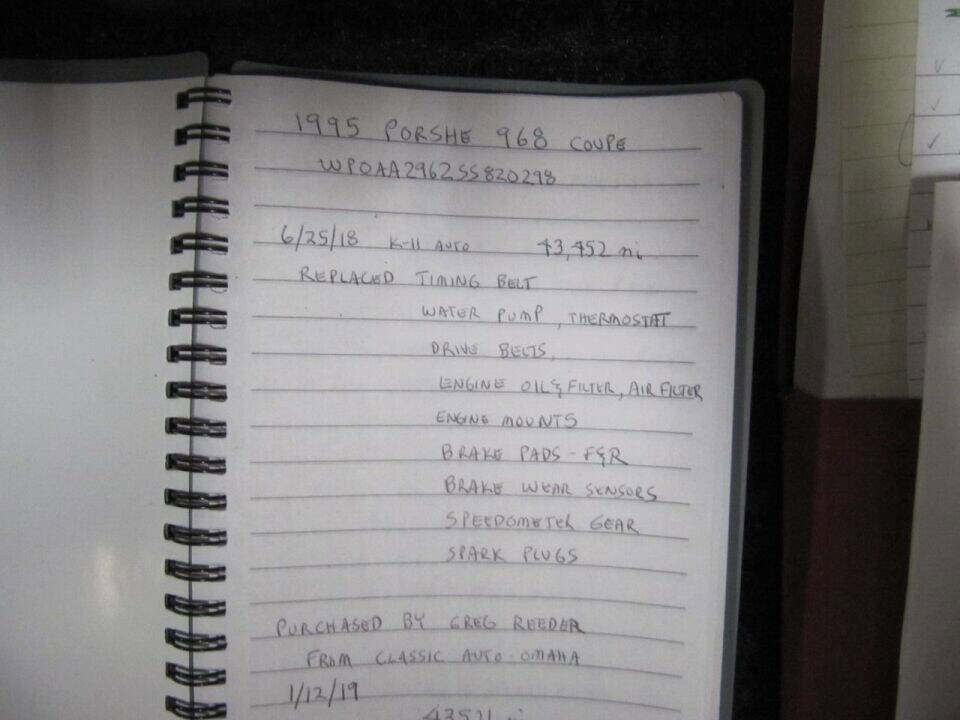 1995 PORSHE 968 COUPE
WPOAA2962SS820298
6/25/18 K-11 AUTO 43,452 mi
REPLACED TIMING BELT
WATER PUMP, THERMOSTAT
DRIVE BELTS,
ENGINE OIL & FILTER, AIR FILTER
ENGINE MOUNTS
BRAKE PADS - F&R
BRAKE WEAR SENSORS
SPEEDOMETER GEAR
SPARK PLUGS
PURCHASED BY GREG REEDER
FROM CLASSIC AUTO OMAHA
1/12/19